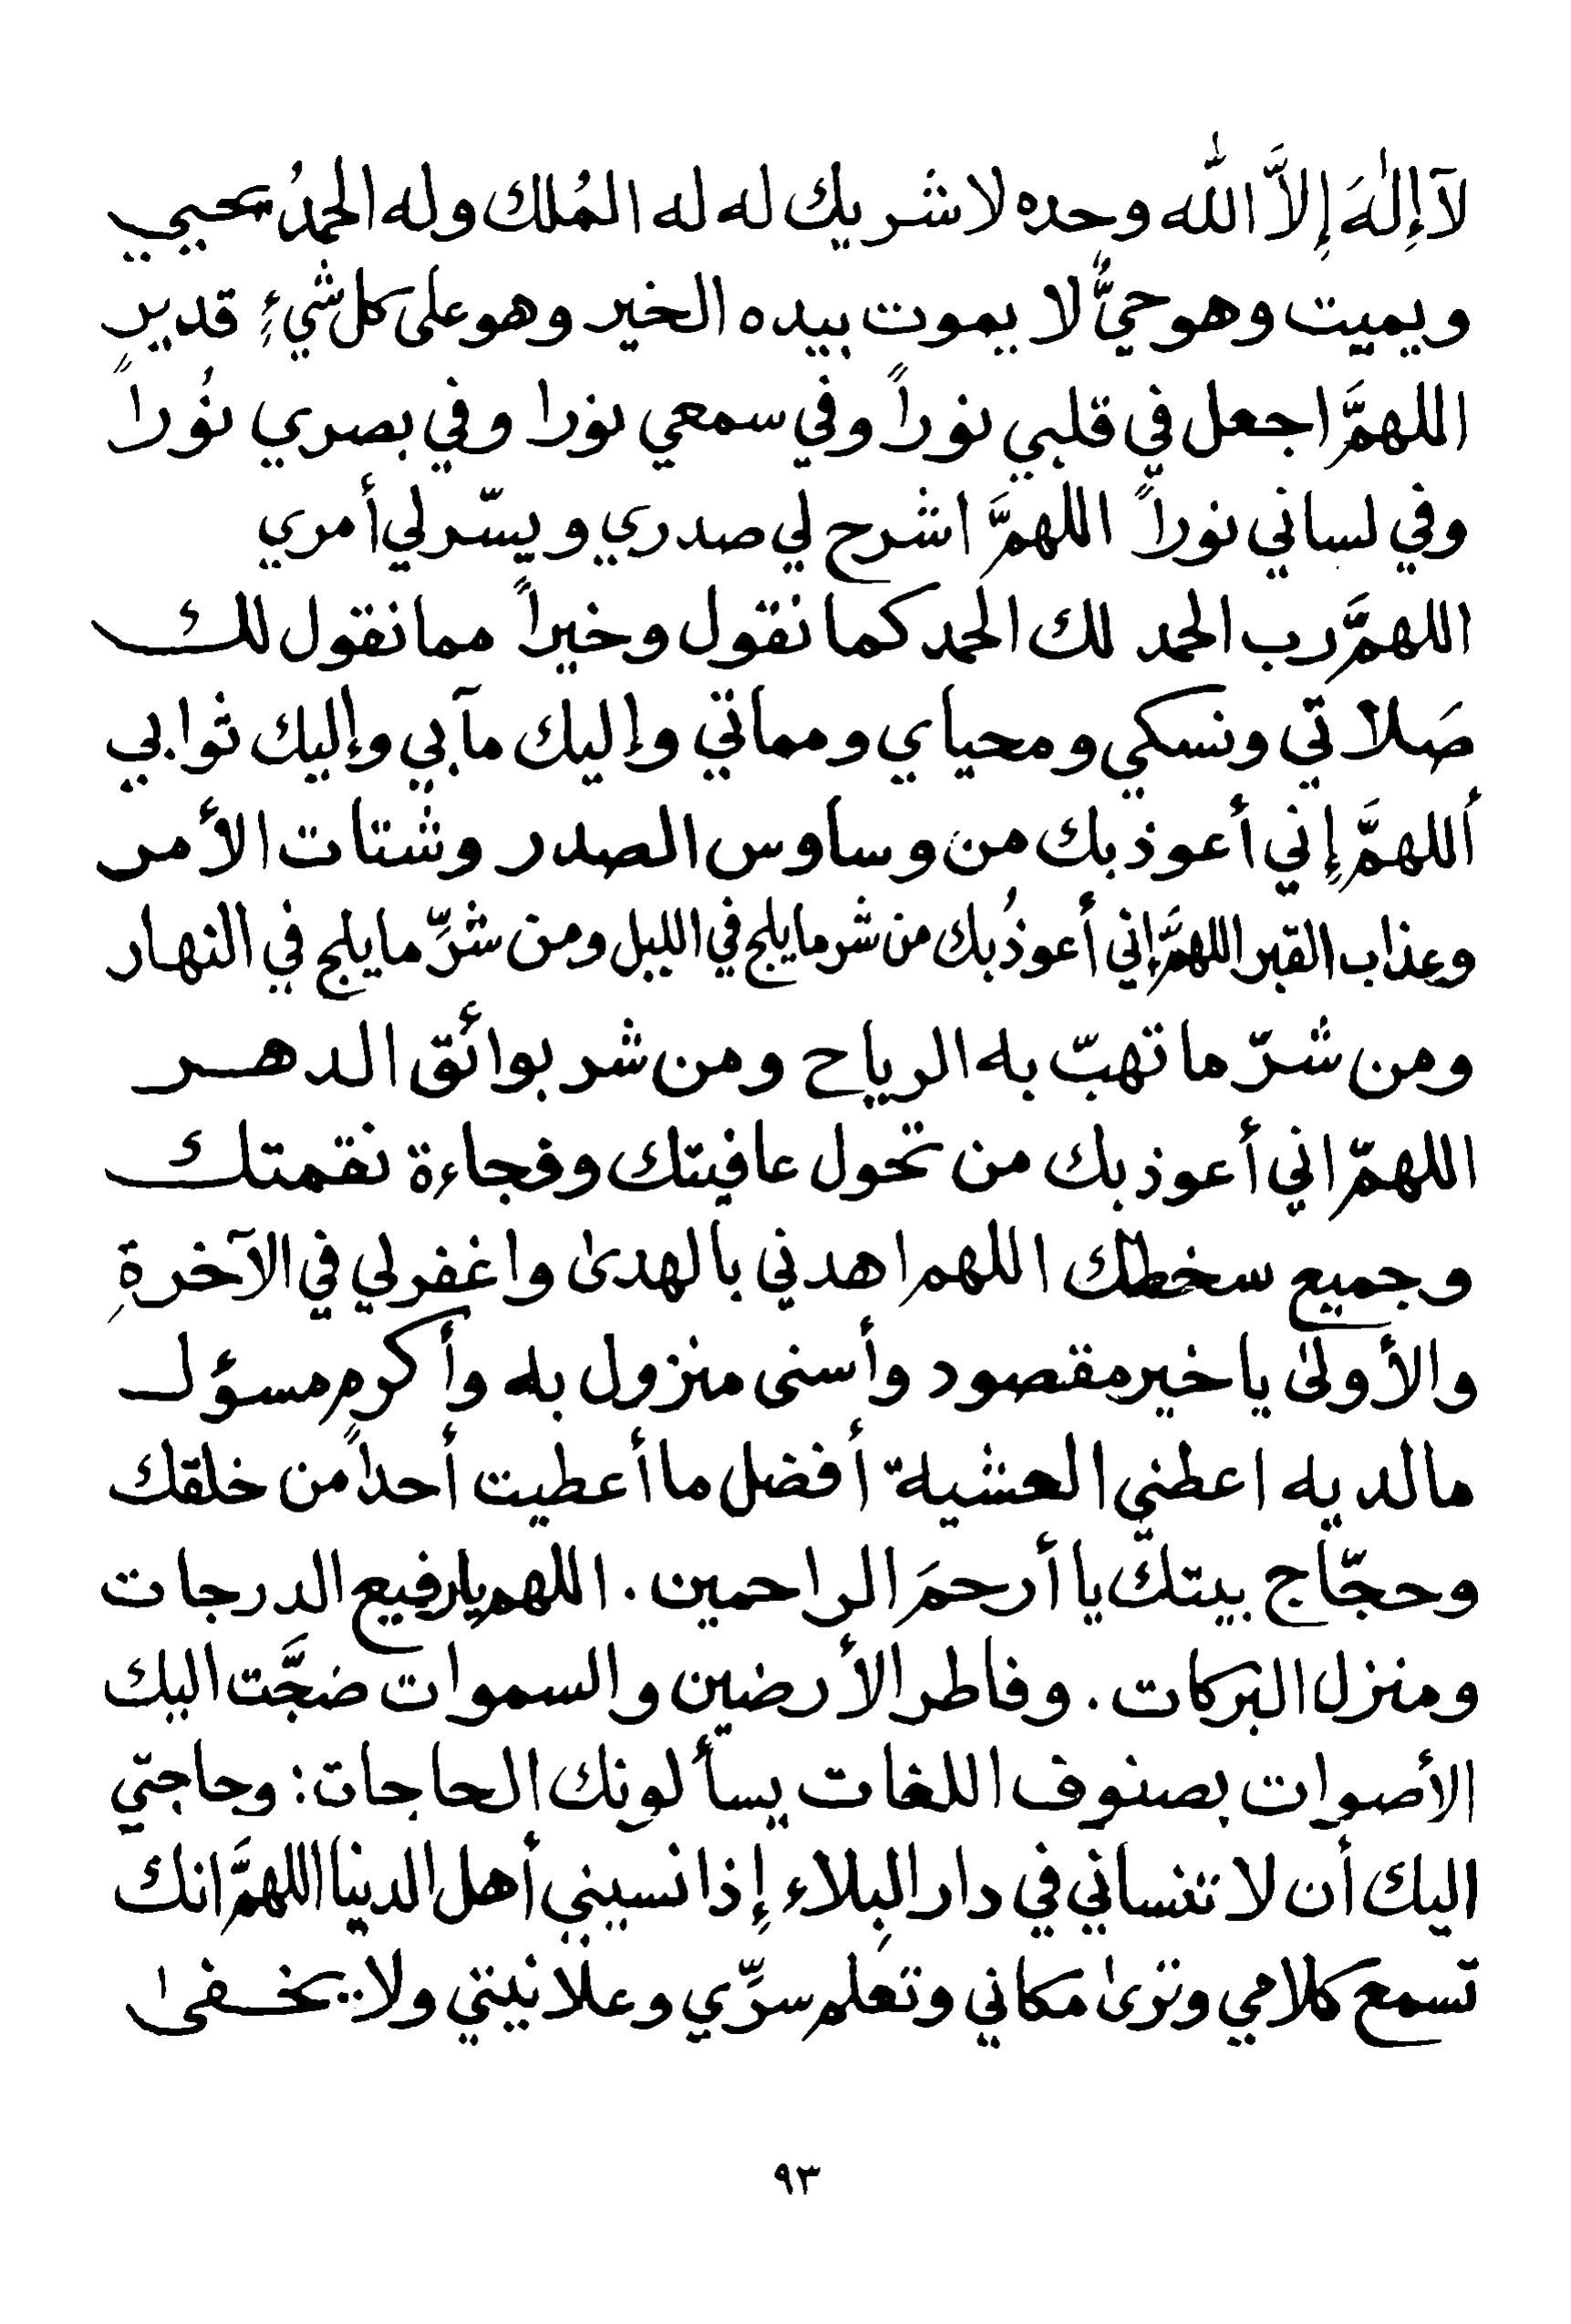 لآ إِلٰهَ إِلاَّ اللّٰه وحده لا شريك له له المُلك وله الحمدُ يحيي
ويميت وهو حيٌّ لا يموت بيده الخير وهو على كل شيءٍ قدير
اللهمَّ اجعل في قلبي نوراً وفي سمعي نورا وفي بصري نُوراً
وفي لساني نوراً اللهمَّ اشرح لي صدري ويسّر لي أمري
اللهمَّ رب الحمد لك الحمد كما نقول وخيراً مما نقول لك
صَلاتي ونسكي ومحياي ومماتي وإليك مآبي وإليك ثوابي
أللهمَّ إِني أعوذ بك من وساوس الصدر وشتات الأمر
وعذاب القبر اللهمَّ إني أعوذُ بك من شر ما يلج في الليل ومن شرِّ ما يلج في النهار
ومن شرّ ما تهبّ به الرياح ومن شر بوائق الدهر
اللهمّ اني أعوذ بك من تحول عافيتك وفجاءة نقمتك
وجميع سخطك اللهم اهدني بالهدىٰ واغفر لي في الآخرةِ
والأولىٰ يا خير مقصود وأسنى منزول به وأكرم مسؤل
ما لديه اعطني العشية أفضل ما أعطيت أحداً من خلقك
وحجّاج بيتك يا أرحمَ الراحمين . اللهم يا رفيع الدرجات
ومنزل البركات . وفاطر الأرضين والسموات ضجَّت اليك
الأصوات بصنوف اللغات يسألونك الحاجات : وحاجتي
اليك أن لا تنساني في دار البِلاء إِذا نسيني أهل الدينا اللهمَّ انك
تسمع كلامي وترىٰ مكاني وتعلم سرِّي وعلانيتي ولا يخفىٰ
٩٣